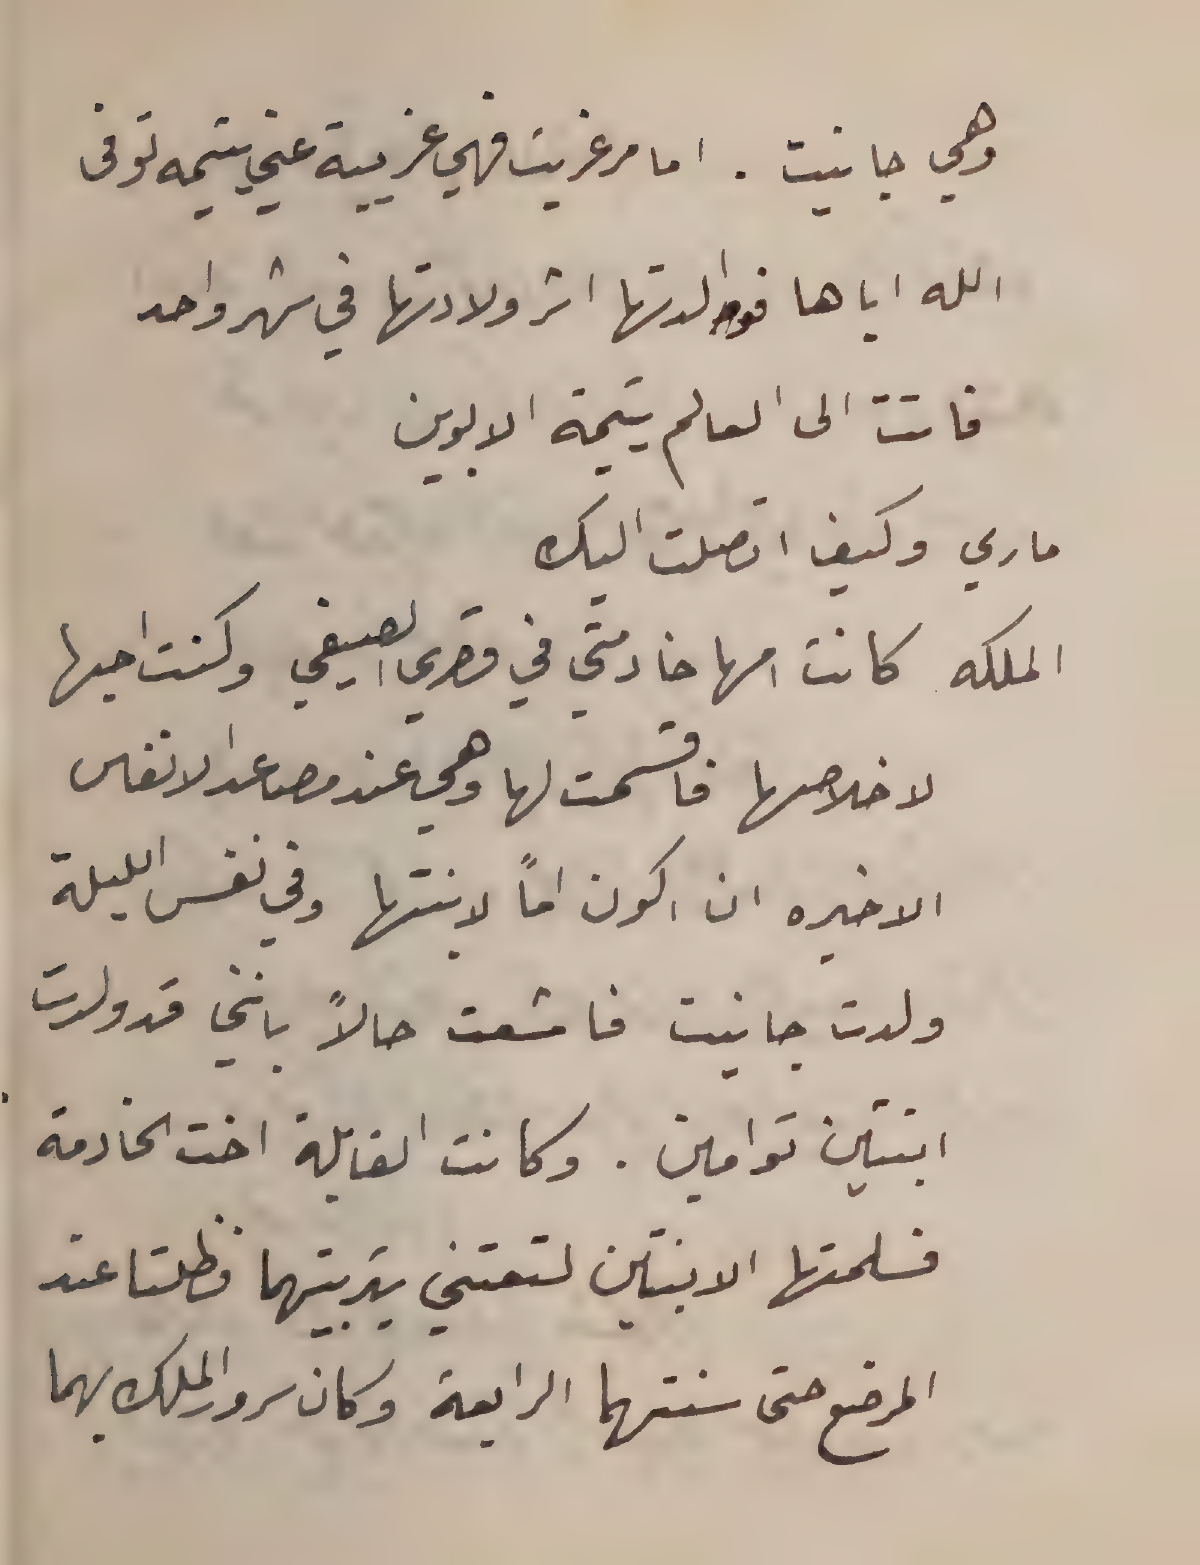 وهي جانيت . اما مرغريت فهي غريبة عني يتيمه توفى
الله اباها فوالدتها اثر ولادتها في شهر واحد
فاتت الى العالم يتيمة الابوين
ماري وكيف اتصلت اليك
الملكه كانت امها خادمتي في قصري الصيفي وكنت احبها
لاخلاصها فاقسمت لها وهي عند مصاعد الانفاس
الاخيره ان اكون اماً لابنتها وفي نفس الليلة
ولدت جانيت فاشعت حالاً بانني قد ولدت
ابنتين توامين . وكانت القابلة اخت الخادمة
فسلمتها الابنتين لتعتني بتربيتهما فظلتا عند
المرضع حتى سنتهما الرابعة وكان سرور الملك بهما